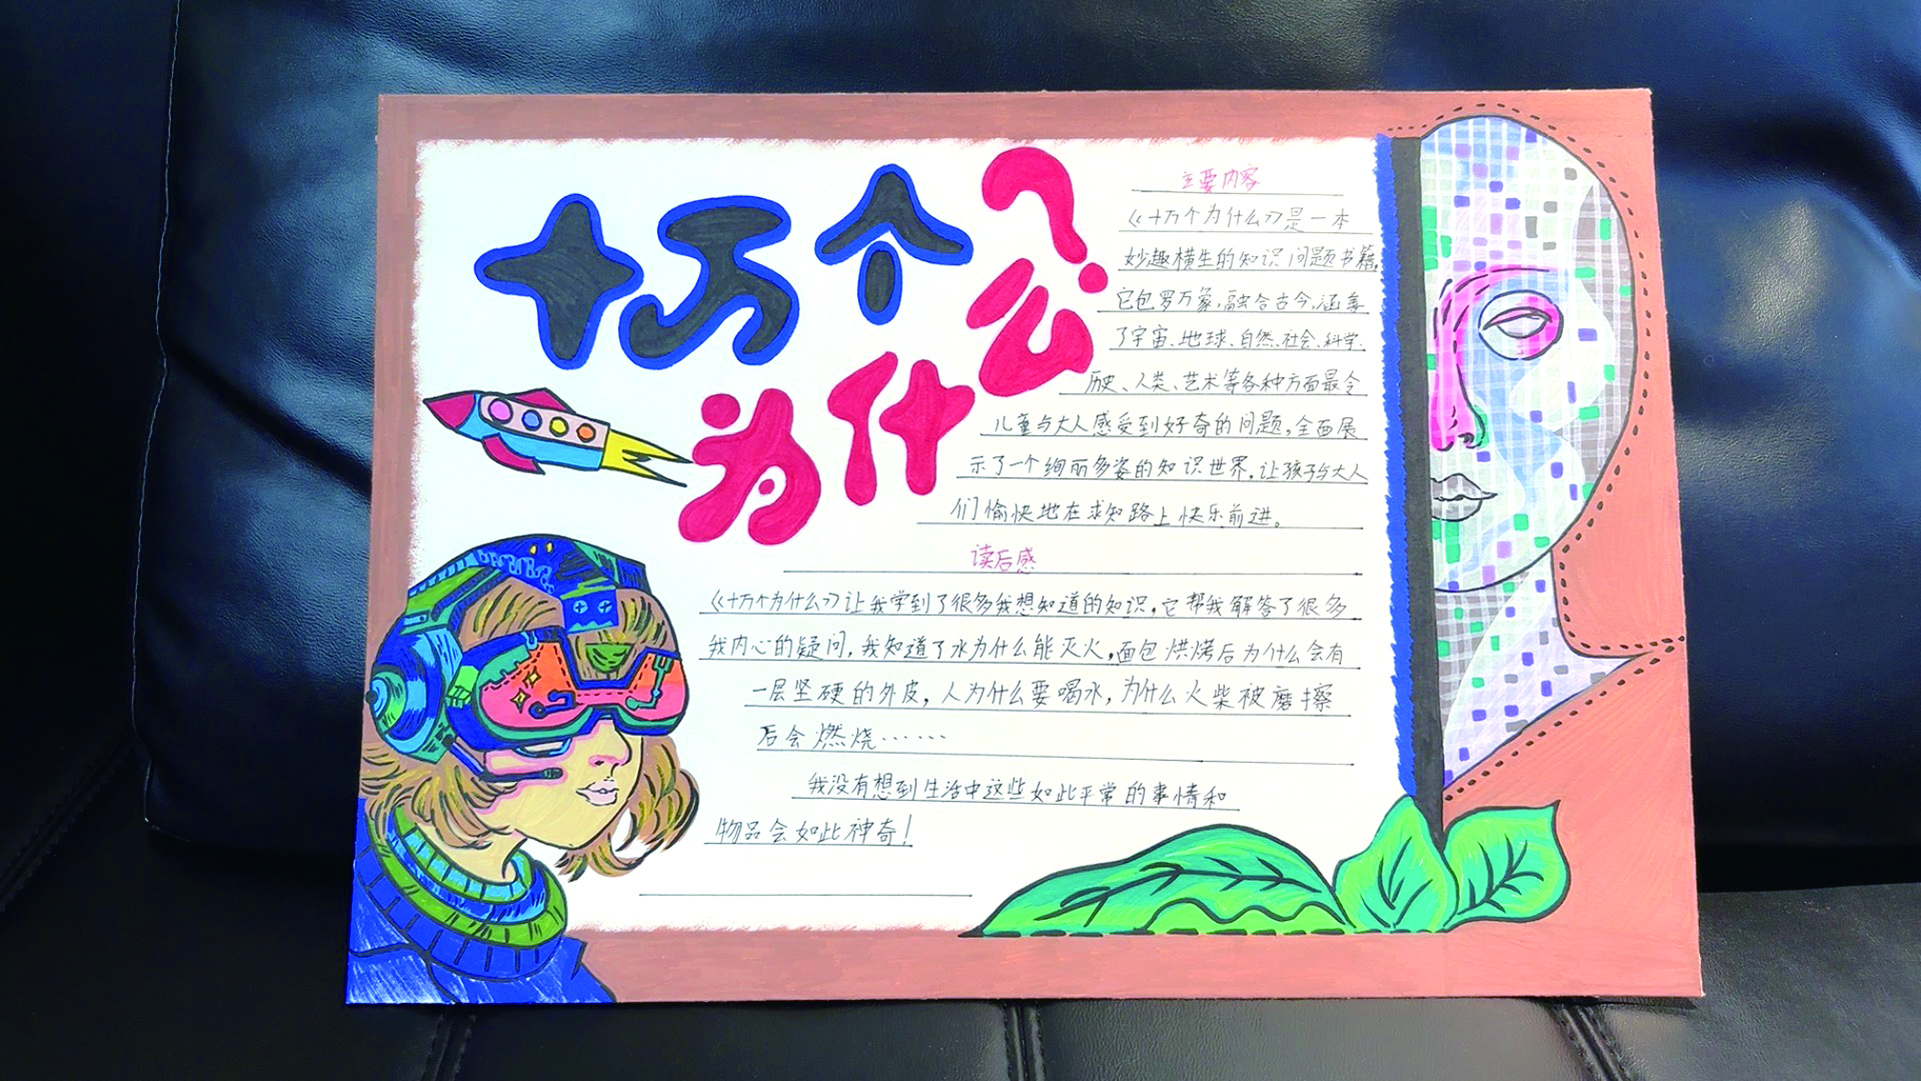 十万个
为什么?
主要内容
《十万个为什么》是一本
妙趣横生的知识问题书籍,
它包罗万象,融合古今,涵盖
了宇宙、地球、自然、社会、科学、
历史、人类、艺术等各种方面最令
儿童与大人感受到好奇的问题,全面展
示了一个绚丽多姿的知识世界,让孩子与大人
们愉快地在求知路上快乐前进。
读后感
《十万个为什么》让我学到了很多我想知道的知识,它帮我解答了很多
我内心的疑问,我知道了水为什么能灭火,面包烘烤后为什么会有
一层坚硬的外皮,人为什么要喝水,为什么火柴被磨擦
后会燃烧……
我没有想到生活中这些如此平常的事情和
物品会如此神奇!